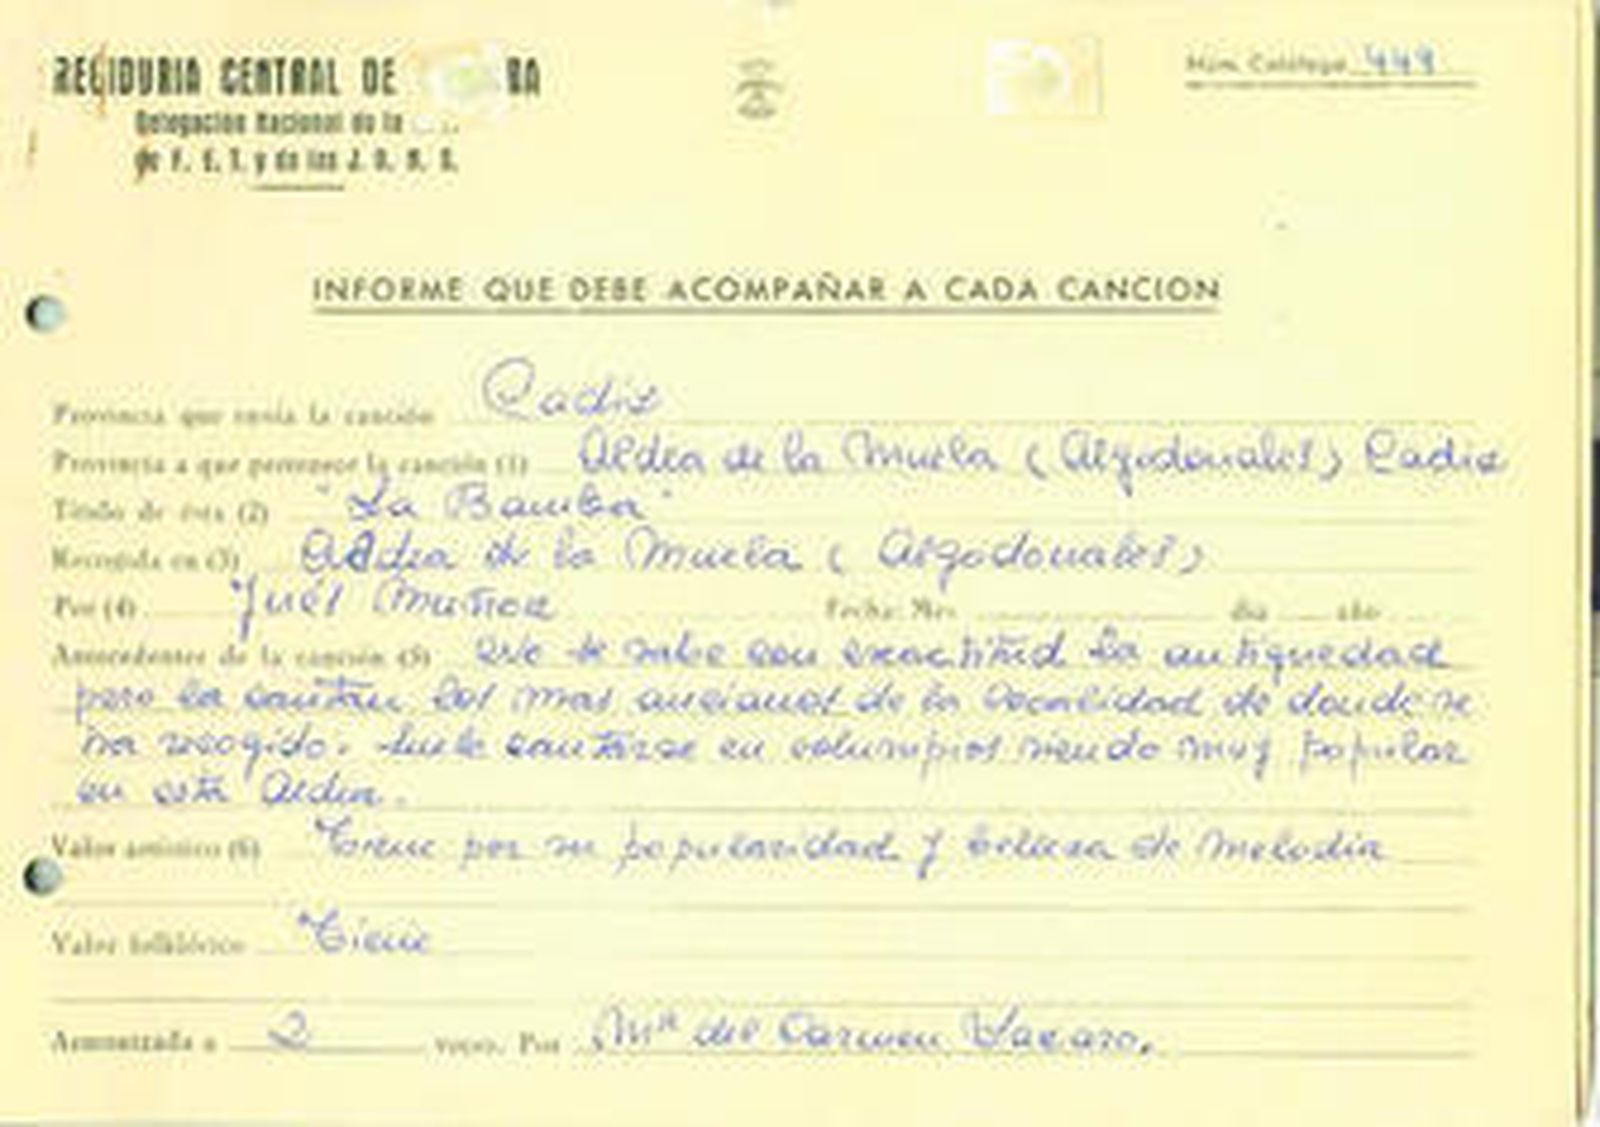 REGIDURIA CENTRAL DE RA
Núm. Catálogo 449
Delegación Nacional de la
de F. E. T. y de las J. O. N. S.
INFORME QUE DEBE ACOMPAÑAR A CADA CANCION
Provincia que envía la canción Cadiz
Provincia a que pertenece la canción (1) Aldea de la Muela (Algodonales) Cadiz
Título de ésta (2) "La Bamba"
Recogida en (3) Aldea de la Muela (Algodonales)
Por (4) Muñoz Fecha: Mes día año
Antecedentes de la canción (5) No se sabe con exactitud la antiguedad
pero la cantan los mas ancianos de la localidad de donde se
ha recogido. Suele cantarse en columpios siendo muy popular
en esta Aldea.
Valor artístico (6) Tiene por su popularidad y belleza de melodia
Valor folklórico Tiene
Armonizada a 2 voces. Por Mª del Carmen